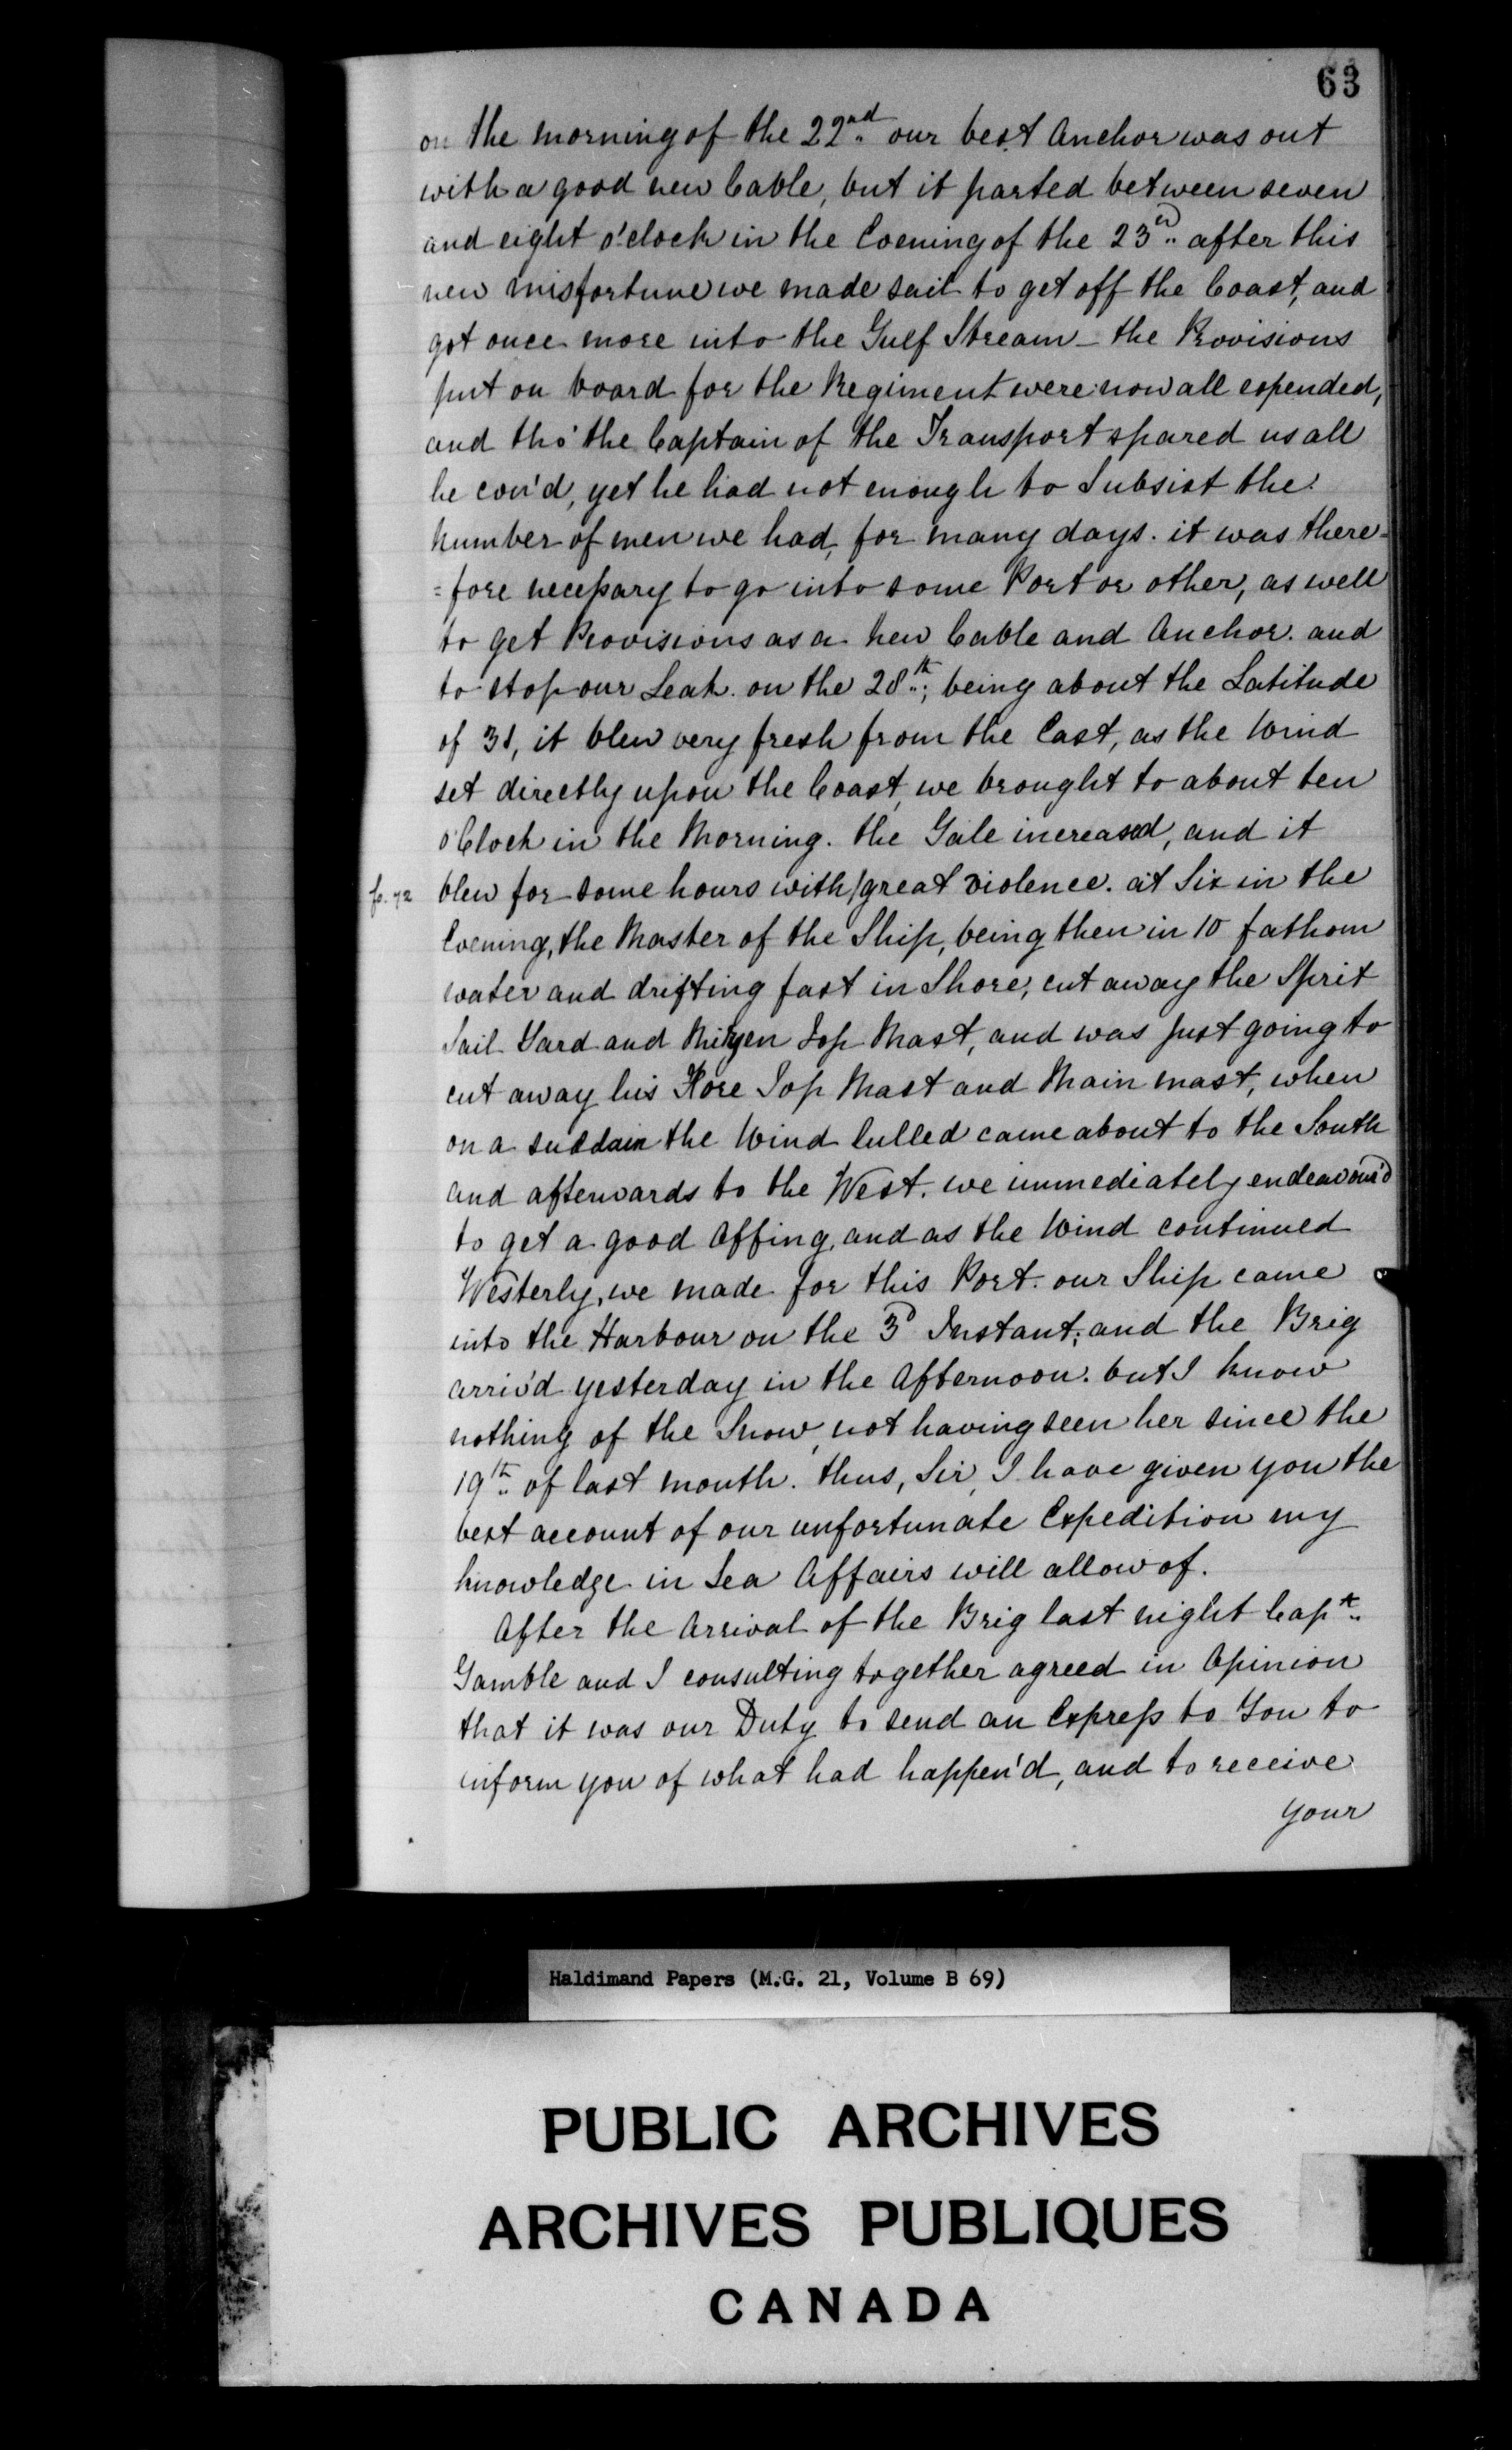 63
on the morning of the 22nd our best Anchor was out
with a good new Cable, but it parted between seven
and eight o'clock in the Evening of the 23d after this
new misfortune we made sail to get off the Coast, and
got once more into the Gulf Stream - the Provisions
put on board for the Regiment were now all expended,
and tho' the Captain of the Transport spared us all
he cou'd, yet he had not enough to Subsist the
number of men we had, for many days. it was there=
=fore necessary to go into some Port or other, as well
to get Provisions as a New Cable and Anchor. and
to stop our Leak. on the 28th; being about the Latitude
of 31, it blew very fresh from the East, as the Wind
set directly upon the Coast, we brought to about ten
o'Clock in the Morning. the Gale increased, and it
f. 72 blew for some hours with/great violence. at Six in the
Evening, the Master of the Ship, being then in 10 fathom
water and drifting fast in Shore, cut away the Sprit
Sail Yard and Mizen Top Mast, and was just going to
cut away his Fore Top Mast and Main mast, when
on a suddain the Wind lulled came about to the South
and afterwards to the West. we immediately endeavour'd
to get a good Offing, and as the Wind continued
Westerly, we made for this Port. our Ship came
into the Harbour on the 3d Instant; and the Brig
arriv'd yesterday in the Afternoon. but I know
nothing of the Snow, not having seen her since the
19th of last month. thus, Sir, I have given you the
best account of our unfortunate Expedition my
knowledge in Sea Affairs will allow of.
After the Arrival of the Brig last night Capt
Gamble and I consulting together agreed in Opinion
that it was our Duty to send an Express to You to
inform you of what had happen'd, and to receive
your
Haldimand Papers (M.G. 21, Volume B 69)
PUBLIC ARCHIVES
ARCHIVES PUBLIQUES
CANADA